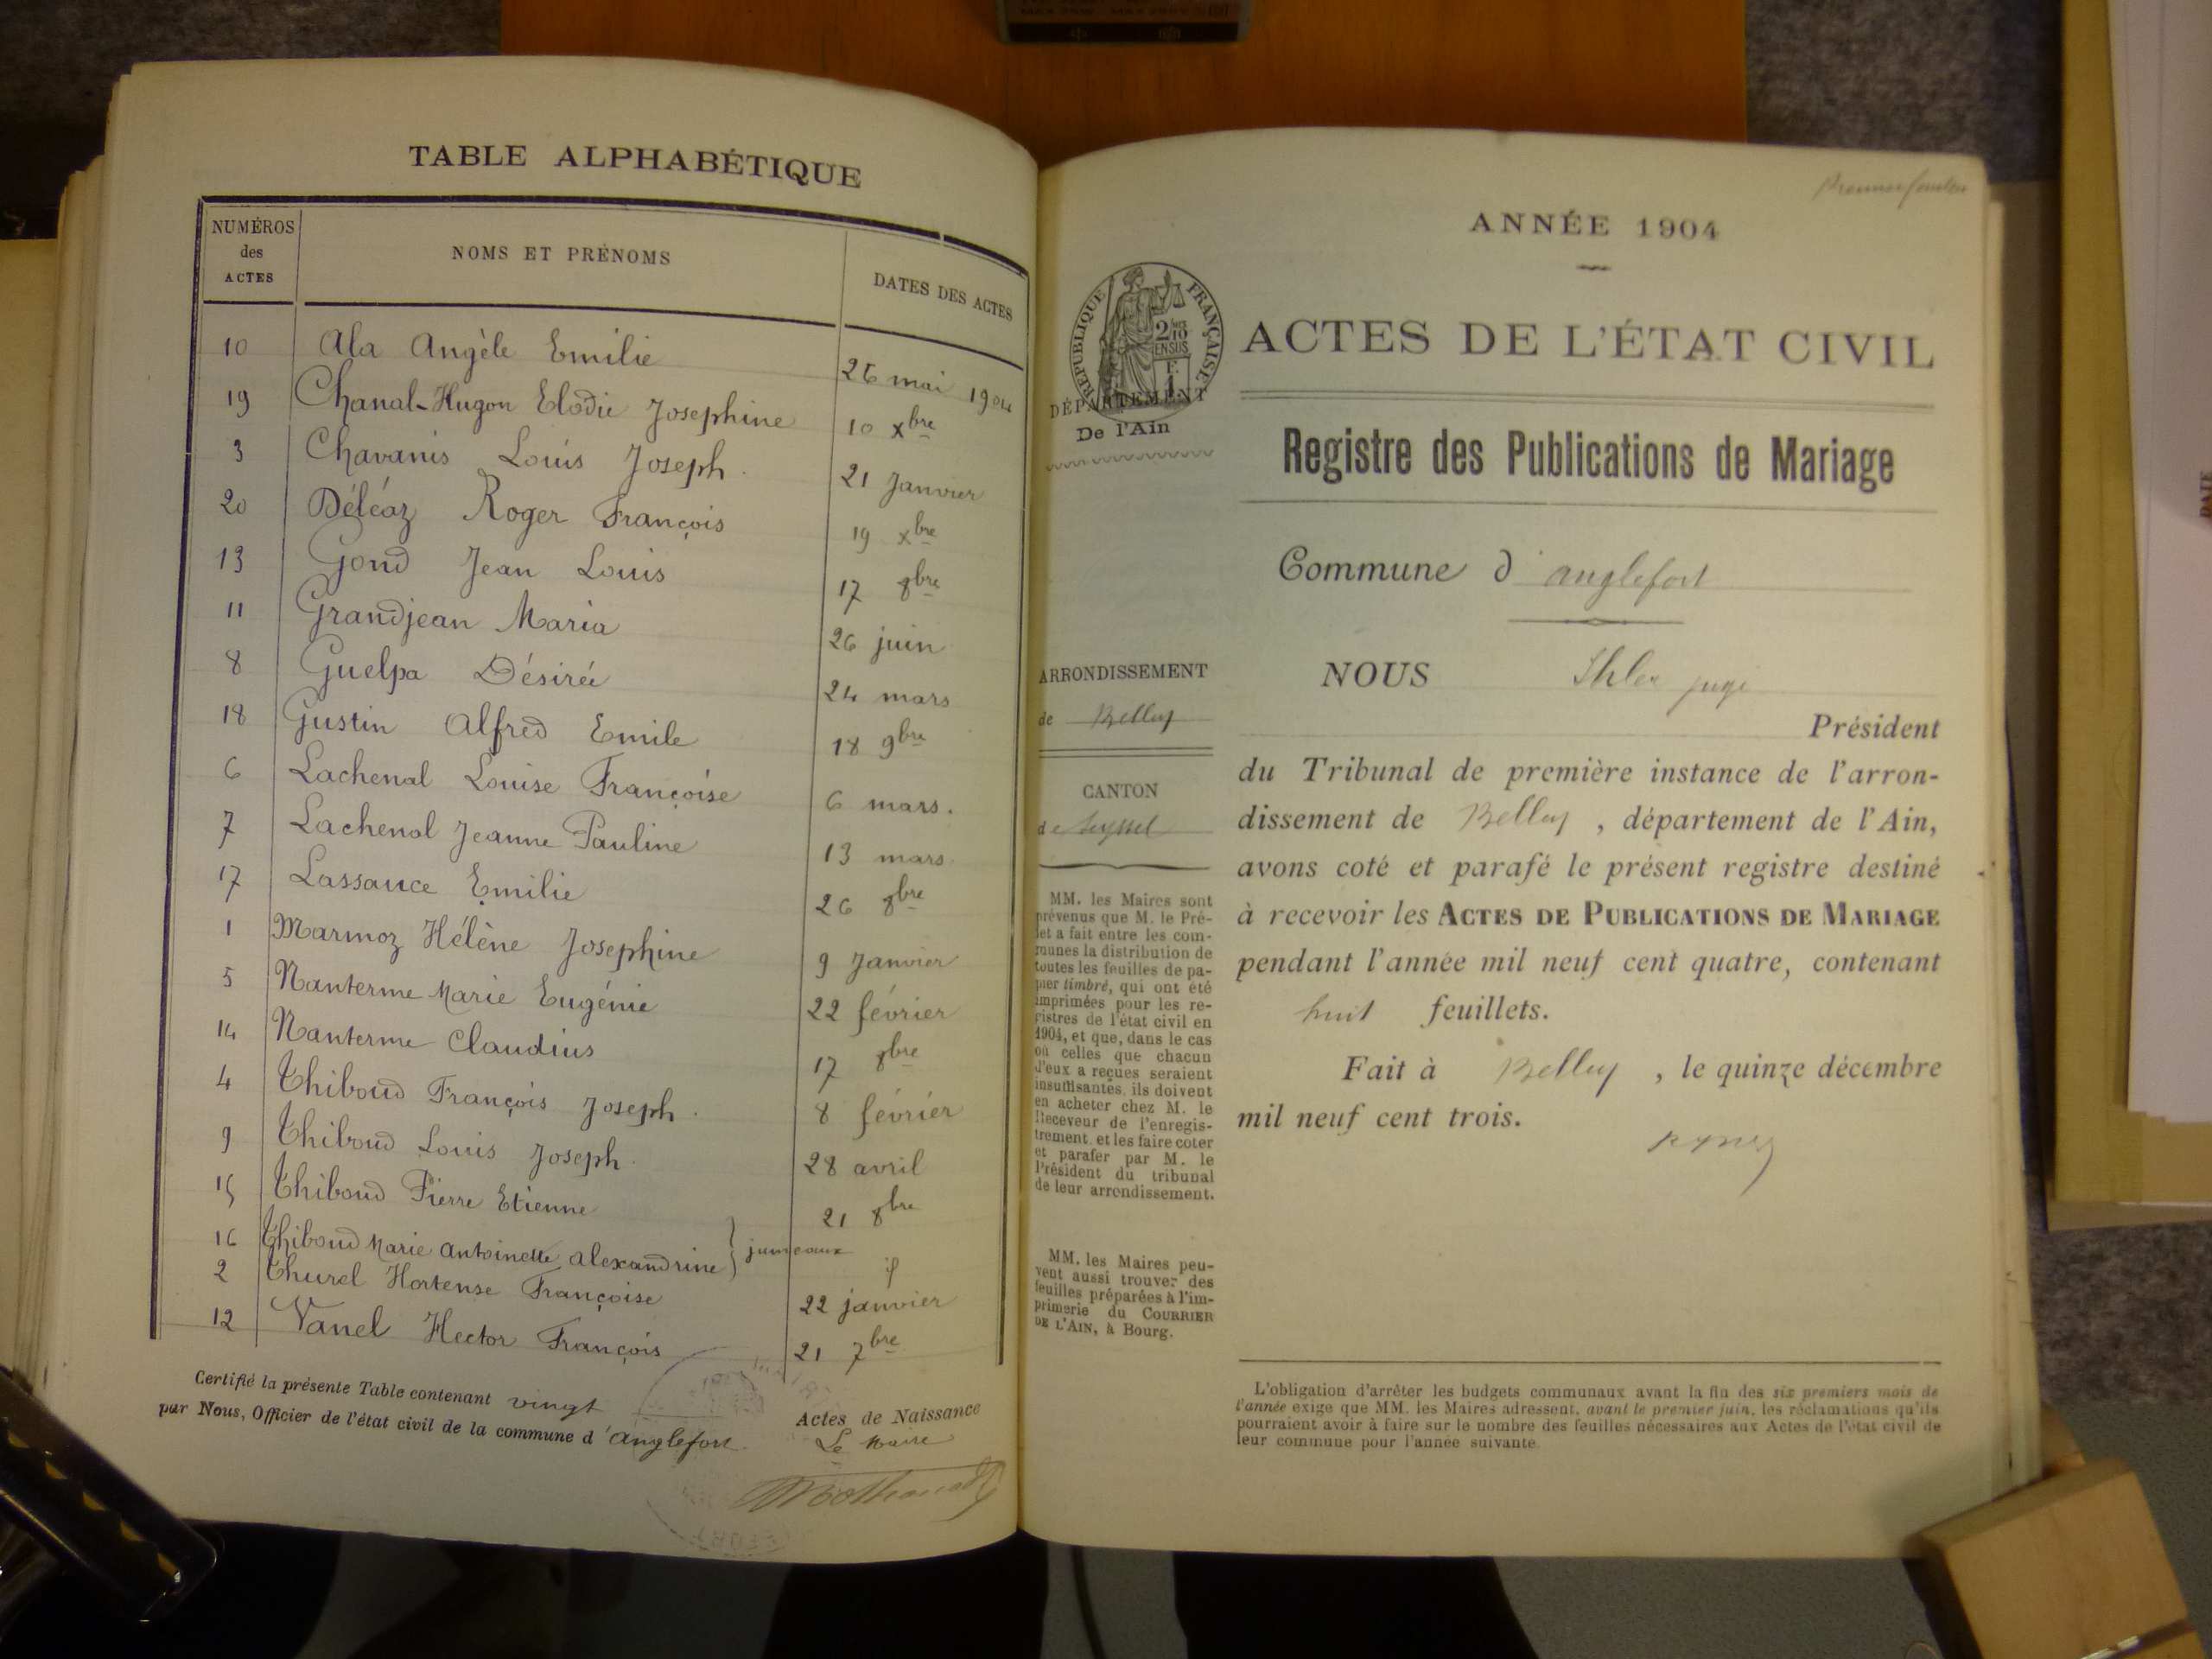 TABLE ALPHABÉTIQUE
NUMÉROS
des
ACTES
NOMS ET PRÉNOMS
DATES DES ACTES
10 Ala Angèle Emilie 26 mai 1904
19 Chanal-Hugon Elodie Josephine 10 Xbre
3 Chavanis Louis Joseph. 21 Janvier
20 Déléaz Roger François 19 Xbre
13 Gond Jean Louis 17 8bre
11 Grandjean Maria 26 juin
8 Guelpa Désirée 24 mars
18 Gustin Alfred Emile 18 9bre
6 Lachenal Louise Françoise 6 mars.
7 Lachenal Jeanne Pauline 13 mars.
17 Lassauce Emilie 26 8bre
1 Marmoz Hélène Josephine 9 Janvier
5 Nanterme Marie Eugénie 22 février
14 Nanterme Claudius 17 8bre
4 Thiboud François Joseph. 8 février
9 Thiboud Louis Joseph. 28 avril
15 Thiboud Pierre Etienne 21 8bre
16 Thiboud Marie Antoinette Alexandrine } jumeaux
2 Thurel Hortense Françoise 22 janvier
12 Vanel Hector François 21 7bre
Certifié la présente Table contenant vingt Actes de Naissance
par Nous, Officier de l'état civil de la commune d'Anglefort
Le Maire
Premier feuillet
ANNÉE 1904
RÉPUBLIQUE FRANÇAISE
2/10
EN SUS
F.
1
DÉPARTEMENT
De l'Ain
ACTES DE L'ÉTAT CIVIL
Registre des Publications de Mariage
Commune d'anglefort
ARRONDISSEMENT
de Belley
CANTON
de Seyssel
MM. les Maires sont
prévenus que M. le Pré-
fet a fait entre les com-
munes la distribution de
toutes les feuilles de pa-
pier timbré, qui ont été
imprimées pour les re-
gistres de l'état civil en
1904, et que, dans le cas
où celles que chacun
d'eux a reçues seraient
insuffisantes, ils doivent
en acheter chez M. le
Receveur de l'enregis-
trement, et les faire coter
et parafer par M. le
Président du tribunal
de leur arrondissement.
MM. les Maires peu-
vent aussi trouver des
feuilles préparées à l'im-
primerie du COURRIER
DE L'AIN, à Bourg.
NOUS juge
Président
du Tribunal de première instance de l'arron-
dissement de Belley, département de l'Ain,
avons coté et parafé le présent registre destiné
à recevoir les ACTES DE PUBLICATIONS DE MARIAGE
pendant l'année mil neuf cent quatre, contenant
huit feuillets.
Fait à Belley, le quinze décembre
mil neuf cent trois.
L'obligation d'arrêter les budgets communaux avant la fin des six premiers mois de
l'année exige que MM. les Maires adressent, avant le premier juin, les réclamations qu'ils
pourraient avoir à faire sur le nombre des feuilles nécessaires aux Actes de l'état civil de
leur commune pour l'année suivante.
DATE